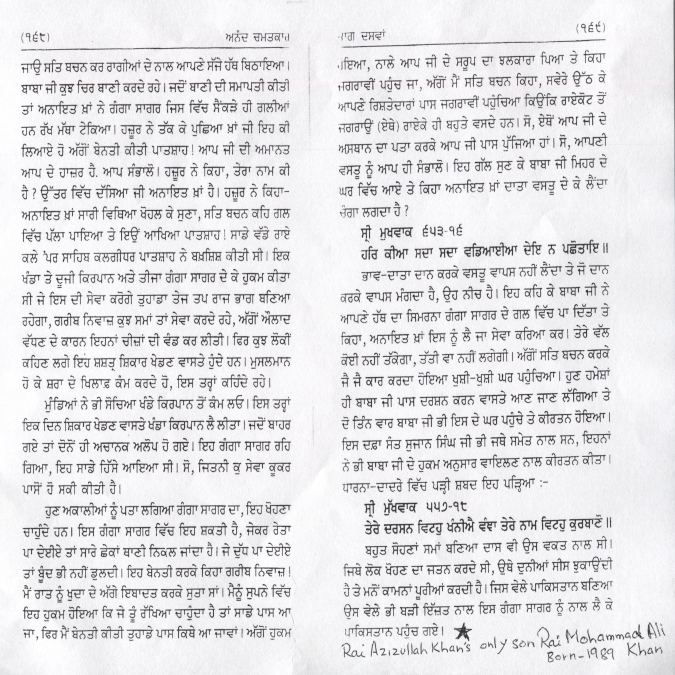 (੧੬੮) ਅਨੰਦ ਚਮਤਕਾਰ
ਜਾਉ ਸਤਿ ਬਚਨ ਕਰ ਰਾਗੀਆਂ ਦੇ ਨਾਲ ਆਪਣੇ ਸੱਜੇ ਹੱਥ ਬਿਠਾਇਆ।
ਬਾਬਾ ਜੀ ਕੁਝ ਚਿਰ ਬਾਣੀ ਕਰਦੇ ਰਹੇ। ਜਦੋਂ ਬਾਣੀ ਦੀ ਸਮਾਪਤੀ ਕੀਤੀ
ਤਾਂ ਅਨਾਇਤ ਖ਼ਾਂ ਨੇ ਗੰਗਾ ਸਾਗਰ ਜਿਸ ਵਿੱਚ ਸੈਂਕੜੇ ਹੀ ਗਲੀਆਂ
ਹਨ ਰੱਖ ਮੱਥਾ ਟੇਕਿਆ। ਹਜ਼ੂਰ ਨੇ ਤੱਕ ਕੇ ਪੁਛਿਆ ਖ਼ਾਂ ਜੀ ਇਹ ਕੀ
ਲਿਆਏ ਹੋ ਅੱਗੋਂ ਬੇਨਤੀ ਕੀਤੀ ਪਾਤਸ਼ਾਹ! ਆਪ ਜੀ ਦੀ ਅਮਾਨਤ
ਆਪ ਦੇ ਹਾਜ਼ਰ ਹੈ. ਆਪ ਸੰਭਾਲੋ। ਹਜ਼ੂਰ ਨੇ ਕਿਹਾ, ਤੇਰਾ ਨਾਮ ਕੀ
ਹੈ? ਉੱਤਰ ਵਿੱਚ ਦੱਸਿਆ ਜੀ ਅਨਾਇਤ ਖ਼ਾਂ ਹੈ। ਹਜ਼ੂਰ ਨੇ ਕਿਹਾ-
ਅਨਾਇਤ ਖ਼ਾਂ ਸਾਰੀ ਵਿਥਿਆ ਖੋਹਲ ਕੇ ਸੁਣਾ, ਸਤਿ ਬਚਨ ਕਹਿ ਗਲ
ਵਿੱਚ ਪੱਲਾ ਪਾਇਆ ਤੇ ਇਉਂ ਆਖਿਆ ਪਾਤਸ਼ਾਹ! ਸਾਡੇ ਵੱਡੇ ਰਾਏ
ਕਲੇ 'ਪਰ ਸਾਹਿਬ ਕਲਗੀਧਰ ਪਾਤਸ਼ਾਹ ਨੇ ਬਖ਼ਸ਼ਿਸ਼ ਕੀਤੀ ਸੀ। ਇਕ
ਖੰਡਾ ਤੇ ਦੂਜੀ ਕਿਰਪਾਨ ਅਤੇ ਤੀਜਾ ਗੰਗਾ ਸਾਗਰ ਦੇ ਕੇ ਹੁਕਮ ਕੀਤਾ
ਸੀ ਜੇ ਇਸ ਦੀ ਸੇਵਾ ਕਰੋਗੇ ਤੁਹਾਡਾ ਤੇਜ ਤਪ ਰਾਜ ਭਾਗ ਬਣਿਆ
ਰਹੇਗਾ, ਗਰੀਬ ਨਿਵਾਜ਼ ਕੁਝ ਸਮਾਂ ਤਾਂ ਸੇਵਾ ਕਰਦੇ ਰਹੇ, ਅੱਗੋਂ ਔਲਾਦ
ਵੱਧਣ ਦੇ ਕਾਰਨ ਇਹਨਾਂ ਚੀਜ਼ਾਂ ਦੀ ਵੰਡ ਕਰ ਲੀਤੀ। ਫਿਰ ਕੁਝ ਲੋਕੀਂ
ਕਹਿਣ ਲਗੇ ਇਹ ਸ਼ਸਤ੍ਰ ਸ਼ਿਕਾਰ ਖੇਡਣ ਵਾਸਤੇ ਹੁੰਦੇ ਹਨ। ਮੁਸਲਮਾਨ
ਹੋ ਕੇ ਸ਼ਰਾ ਦੇ ਖਿਲਾਫ਼ ਕੰਮ ਕਰਦੇ ਹੋ, ਇਸ ਤਰ੍ਹਾਂ ਕਹਿੰਦੇ ਰਹੇ।
ਮੁੰਡਿਆਂ ਨੇ ਭੀ ਸੋਚਿਆ ਖੰਡੇ ਕਿਰਪਾਨ ਤੋਂ ਕੰਮ ਲਓ। ਇਸ ਤਰ੍ਹਾਂ
ਇਕ ਦਿਨ ਸ਼ਿਕਾਰ ਖੇਡਣ ਵਾਸਤੇ ਖੰਡਾ ਕਿਰਪਾਨ ਲੈ ਲੀਤਾ। ਜਦੋਂ ਬਾਹਰ
ਗਏ ਤਾਂ ਦੋਨੋਂ ਹੀ ਅਚਾਨਕ ਅਲੋਪ ਹੋ ਗਏ। ਇਹ ਗੰਗਾ ਸਾਗਰ ਰਹਿ
ਗਿਆ, ਇਹ ਸਾਡੇ ਹਿੱਸੇ ਆਇਆ ਸੀ। ਸੋ, ਜਿਤਨੀ ਕੁ ਸੇਵਾ ਕੂਕਰ
ਪਾਸੋਂ ਹੋ ਸਕੀ ਕੀਤੀ ਹੈ।
ਹੁਣ ਅਕਾਲੀਆਂ ਨੂੰ ਪਤਾ ਲਗਿਆ ਗੰਗਾ ਸਾਗਰ ਦਾ, ਇਹ ਖੋਹਣਾ
ਚਾਹੁੰਦੇ ਹਨ। ਇਸ ਗੰਗਾ ਸਾਗਰ ਵਿੱਚ ਇਹ ਸ਼ਕਤੀ ਹੈ, ਜੇਕਰ ਰੇਤਾ
ਪਾ ਦੇਈਏ ਤਾਂ ਸਾਰੇ ਛੇਕਾਂ ਥਾਣੀ ਨਿਕਲ ਜਾਂਦਾ ਹੈ। ਜੇ ਦੁੱਧ ਪਾ ਦੇਈਏ
ਤਾਂ ਬੂੰਦ ਭੀ ਨਹੀਂ ਡੁਲਦੀ। ਇਹ ਬੇਨਤੀ ਕਰਕੇ ਕਿਹਾ ਗਰੀਬ ਨਿਵਾਜ਼!
ਮੈਂ ਰਾਤ ਨੂੰ ਖ਼ੁਦਾ ਦੇ ਅੱਗੇ ਇਬਾਦਤ ਕਰਕੇ ਸੁਤਾ ਸਾਂ। ਮੈਨੂੰ ਸੁਪਨੇ ਵਿੱਚ
ਇਹ ਹੁਕਮ ਹੋਇਆ ਕਿ ਜੇ ਤੂੰ ਰੱਖਿਆ ਚਾਹੁੰਦਾ ਹੈ ਤਾਂ ਸਾਡੇ ਪਾਸ ਆ
ਜਾ, ਫਿਰ ਮੈਂ ਬੇਨਤੀ ਕੀਤੀ ਤੁਹਾਡੇ ਪਾਸ ਕਿਥੇ ਆ ਜਾਵਾਂ। ਅੱਗੋਂ ਹੁਕਮ
ਭਾਗ ਦਸਵਾਂ (੧੬੯)
ਹੋਇਆ, ਨਾਲੇ ਆਪ ਜੀ ਦੇ ਸਰੂਪ ਦਾ ਝਲਕਾਰਾ ਪਿਆ ਤੇ ਕਿਹਾ
ਜਗਰਾਵੀਂ ਪਹੁੰਚ ਜਾ, ਅੱਗੋਂ ਮੈਂ ਸਤਿ ਬਚਨ ਕਿਹਾ, ਸਵੇਰੇ ਉੱਠ ਕੇ
ਆਪਣੇ ਰਿਸ਼ਤੇਦਾਰਾਂ ਪਾਸ ਜਗਰਾਵੀਂ ਪਹੁੰਚਿਆ ਕਿਉਂਕਿ ਰਾਏਕੋਟ ਤੋਂ
ਜਗਰਾਉਂ (ਏਥੇ) ਰਾਏਕੇ ਹੀ ਬਹੁਤੇ ਵਸਦੇ ਹਨ। ਸੋ, ਏਥੋਂ ਆਪ ਜੀ ਦੇ
ਅਸਥਾਨ ਦਾ ਪਤਾ ਕਰਕੇ ਆਪ ਜੀ ਪਾਸ ਪੁੱਜਿਆ ਹਾਂ। ਸੋ, ਆਪਣੀ
ਵਸਤੂ ਨੂੰ ਆਪ ਹੀ ਸੰਭਾਲੋ। ਇਹ ਗੱਲ ਸੁਣ ਕੇ ਬਾਬਾ ਜੀ ਮਿਹਰ ਦੇ
ਘਰ ਵਿੱਚ ਆਏ ਤੇ ਕਿਹਾ ਅਨਾਇਤ ਖ਼ਾਂ ਦਾਤਾ ਵਸਤੂ ਦੇ ਕੇ ਲੈਂਦਾ
ਚੰਗਾ ਲਗਦਾ ਹੈ?
ਸ੍ਰੀ ਮੁਖਵਾਕ ੬੫੩-੧੬
ਹਰਿ ਕੀਆ ਸਦਾ ਸਦਾ ਵਡਿਆਈਆ ਦੇਇ ਨ ਪਛੋਤਾਇ॥
ਭਾਵ-ਦਾਤਾ ਦਾਨ ਕਰਕੇ ਵਸਤੂ ਵਾਪਸ ਨਹੀਂ ਲੈਂਦਾ ਤੇ ਜੋ ਦਾਨ
ਕਰਕੇ ਵਾਪਸ ਮੰਗਦਾ ਹੈ, ਉਹ ਨੀਚ ਹੈ। ਇਹ ਕਹਿ ਕੇ ਬਾਬਾ ਜੀ ਨੇ
ਆਪਣੇ ਹੱਥ ਦਾ ਸਿਮਰਨਾ ਗੰਗਾ ਸਾਗਰ ਦੇ ਗਲ ਵਿੱਚ ਪਾ ਦਿੱਤਾ ਤੇ
ਕਿਹਾ, ਅਨਾਇਤ ਖ਼ਾਂ ਇਸ ਨੂੰ ਲੈ ਜਾ ਸੇਵਾ ਕਰਿਆ ਕਰ। ਤੇਰੇ ਵੱਲ
ਕੋਈ ਨਹੀਂ ਤੱਕੇਗਾ, ਤੱਤੀ ਵਾ ਨਹੀਂ ਲਗੇਗੀ। ਅੱਗੋਂ ਸਤਿ ਬਚਨ ਕਰਕੇ
ਜੈ ਜੈ ਕਾਰ ਕਰਦਾ ਹੋਇਆ ਖੁਸ਼ੀ-ਖੁਸ਼ੀ ਘਰ ਪਹੁੰਚਿਆ। ਹੁਣ ਹਮੇਸ਼ਾਂ
ਹੀ ਬਾਬਾ ਜੀ ਪਾਸ ਦਰਸ਼ਨ ਕਰਨ ਵਾਸਤੇ ਆਣ ਜਾਣ ਲੱਗਿਆ ਤੇ
ਦੋ ਤਿੰਨ ਵਾਰ ਬਾਬਾ ਜੀ ਭੀ ਇਸ ਦੇ ਘਰ ਪਹੁੰਚੇ ਤੇ ਕੀਰਤਨ ਹੋਇਆ।
ਇਸ ਦਫ਼ਾ ਸੰਤ ਸੁਜਾਨ ਸਿੰਘ ਜੀ ਭੀ ਜਥੇ ਸਮੇਤ ਨਾਲ ਸਨ, ਇਹਨਾਂ
ਨੇ ਭੀ ਬਾਬਾ ਜੀ ਦੇ ਹੁਕਮ ਅਨੁਸਾਰ ਵਾਇਲਣ ਨਾਲ ਕੀਰਤਨ ਕੀਤਾ।
ਧਾਰਨਾ-ਦਾਦਰੇ ਵਿੱਚ ਪੜ੍ਹੀ ਸ਼ਬਦ ਇਹ ਪੜ੍ਹਿਆ :-
ਸ੍ਰੀ ਮੁੱਖਵਾਕ ੫੫੭-੧੮
ਤੇਰੇ ਦਰਸਨ ਵਿਟਹੁ ਖੰਨੀਐ ਵੰਞਾ ਤੇਰੇ ਨਾਮ ਵਿਟਹੁ ਕੁਰਬਾਣੋ॥
ਬਹੁਤ ਸੋਹਣਾਂ ਸਮਾਂ ਬਣਿਆ ਦਾਸ ਵੀ ਉਸ ਵਕਤ ਨਾਲ ਸੀ।
ਜਿਥੇ ਲੋਕ ਖੋਹਣ ਦਾ ਜਤਨ ਕਰਦੇ ਸੀ, ਉਥੇ ਦੁਨੀਆਂ ਸੀਸ ਝੁਕਾਉਂਦੀ
ਹੈ ਤੇ ਮਨੋਂ ਕਾਮਨਾਂ ਪੂਰੀਆਂ ਕਰਦੀ ਹੈ। ਜਿਸ ਵੇਲੇ ਪਾਕਿਸਤਾਨ ਬਣਿਆ
ਉਸ ਵੇਲੇ ਭੀ ਬੜੀ ਇੱਜ਼ਤ ਨਾਲ ਇਸ ਗੰਗਾ ਸਾਗਰ ਨੂੰ ਨਾਲ ਲੈ ਕੇ
ਪਾਕਿਸਤਾਨ ਪਹੁੰਚ ਗਏ।
Rai Azizullah Khan's only son Rai Mohammad Ali Khan
Born-1989